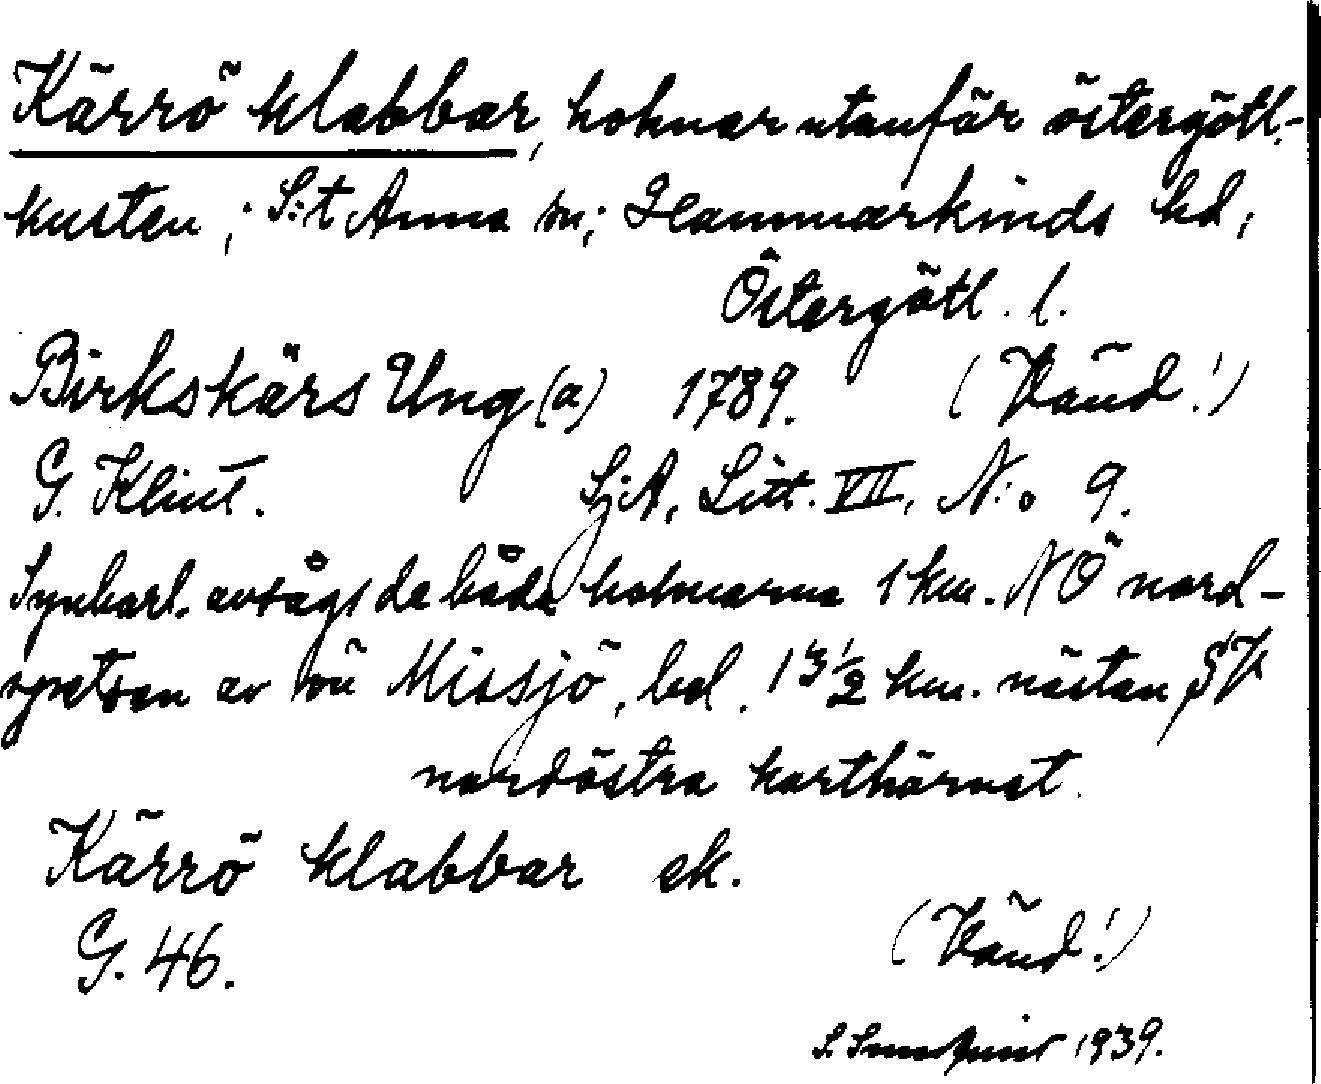 Kärrö klabbar, holmar utanför östergötl.-
kusten; S:t Anna sn; Hammarkinds hd;
Östergötl. l.
Birkskärs Ung(a) 1789. (Vänd!)
G. Klint. SjA, Litt. VII, N:o 9.
Synbarl. avsågs de båda holmarna 1 km. NÖ nord-
spetsen av ön Missjö, bel. 13 1/2 km. nästan SV
nordöstra karthörnet.
Kärrö klabbar ek.
G. 46. (Vänd!)
S. 1939.